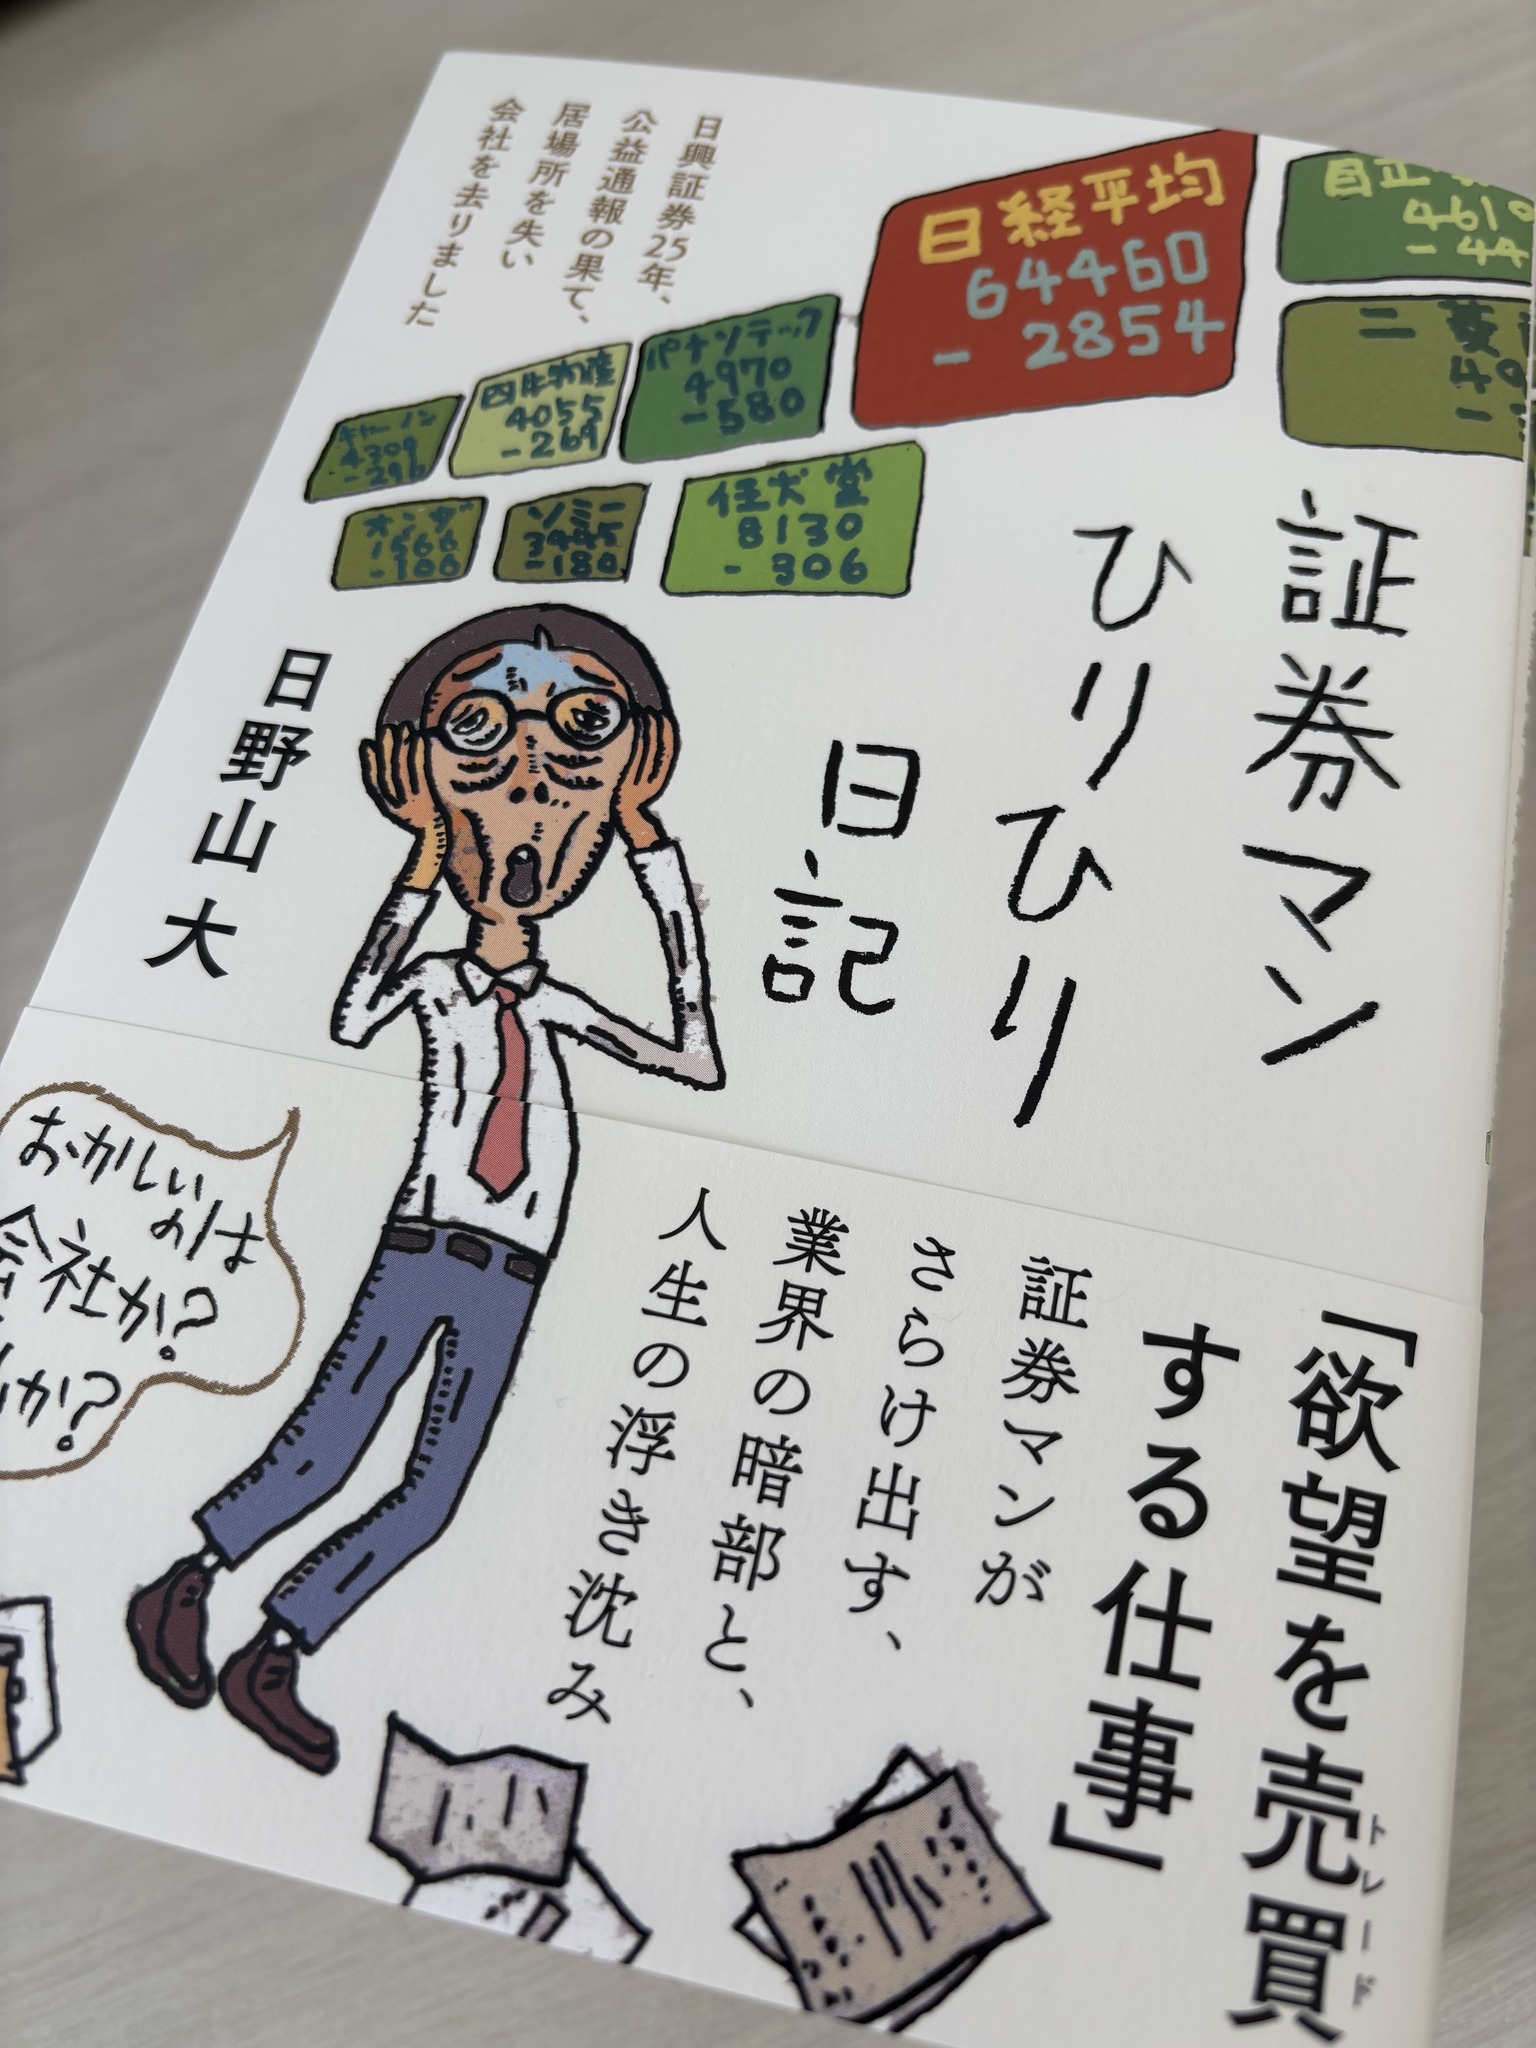 日興証券25年、
公益通報の果て、
居場所を失い
会社を去りました
日経平均
64460
- 2854
4610
- 44
パナソテック
4970
-580
四井物産
4055
-269
キャーノン
4309
-296
オンダ
1566
-100
ソミー
3995
-180
任犬堂
8130
- 306
二菱
証券マン
ひりひり
日記
日野山 大
おかしい
のは
会社か?
か?
「欲望を売買
トレード
する仕事」
証券マンが
さらけ出す、
業界の暗部と、
人生の浮き沈み